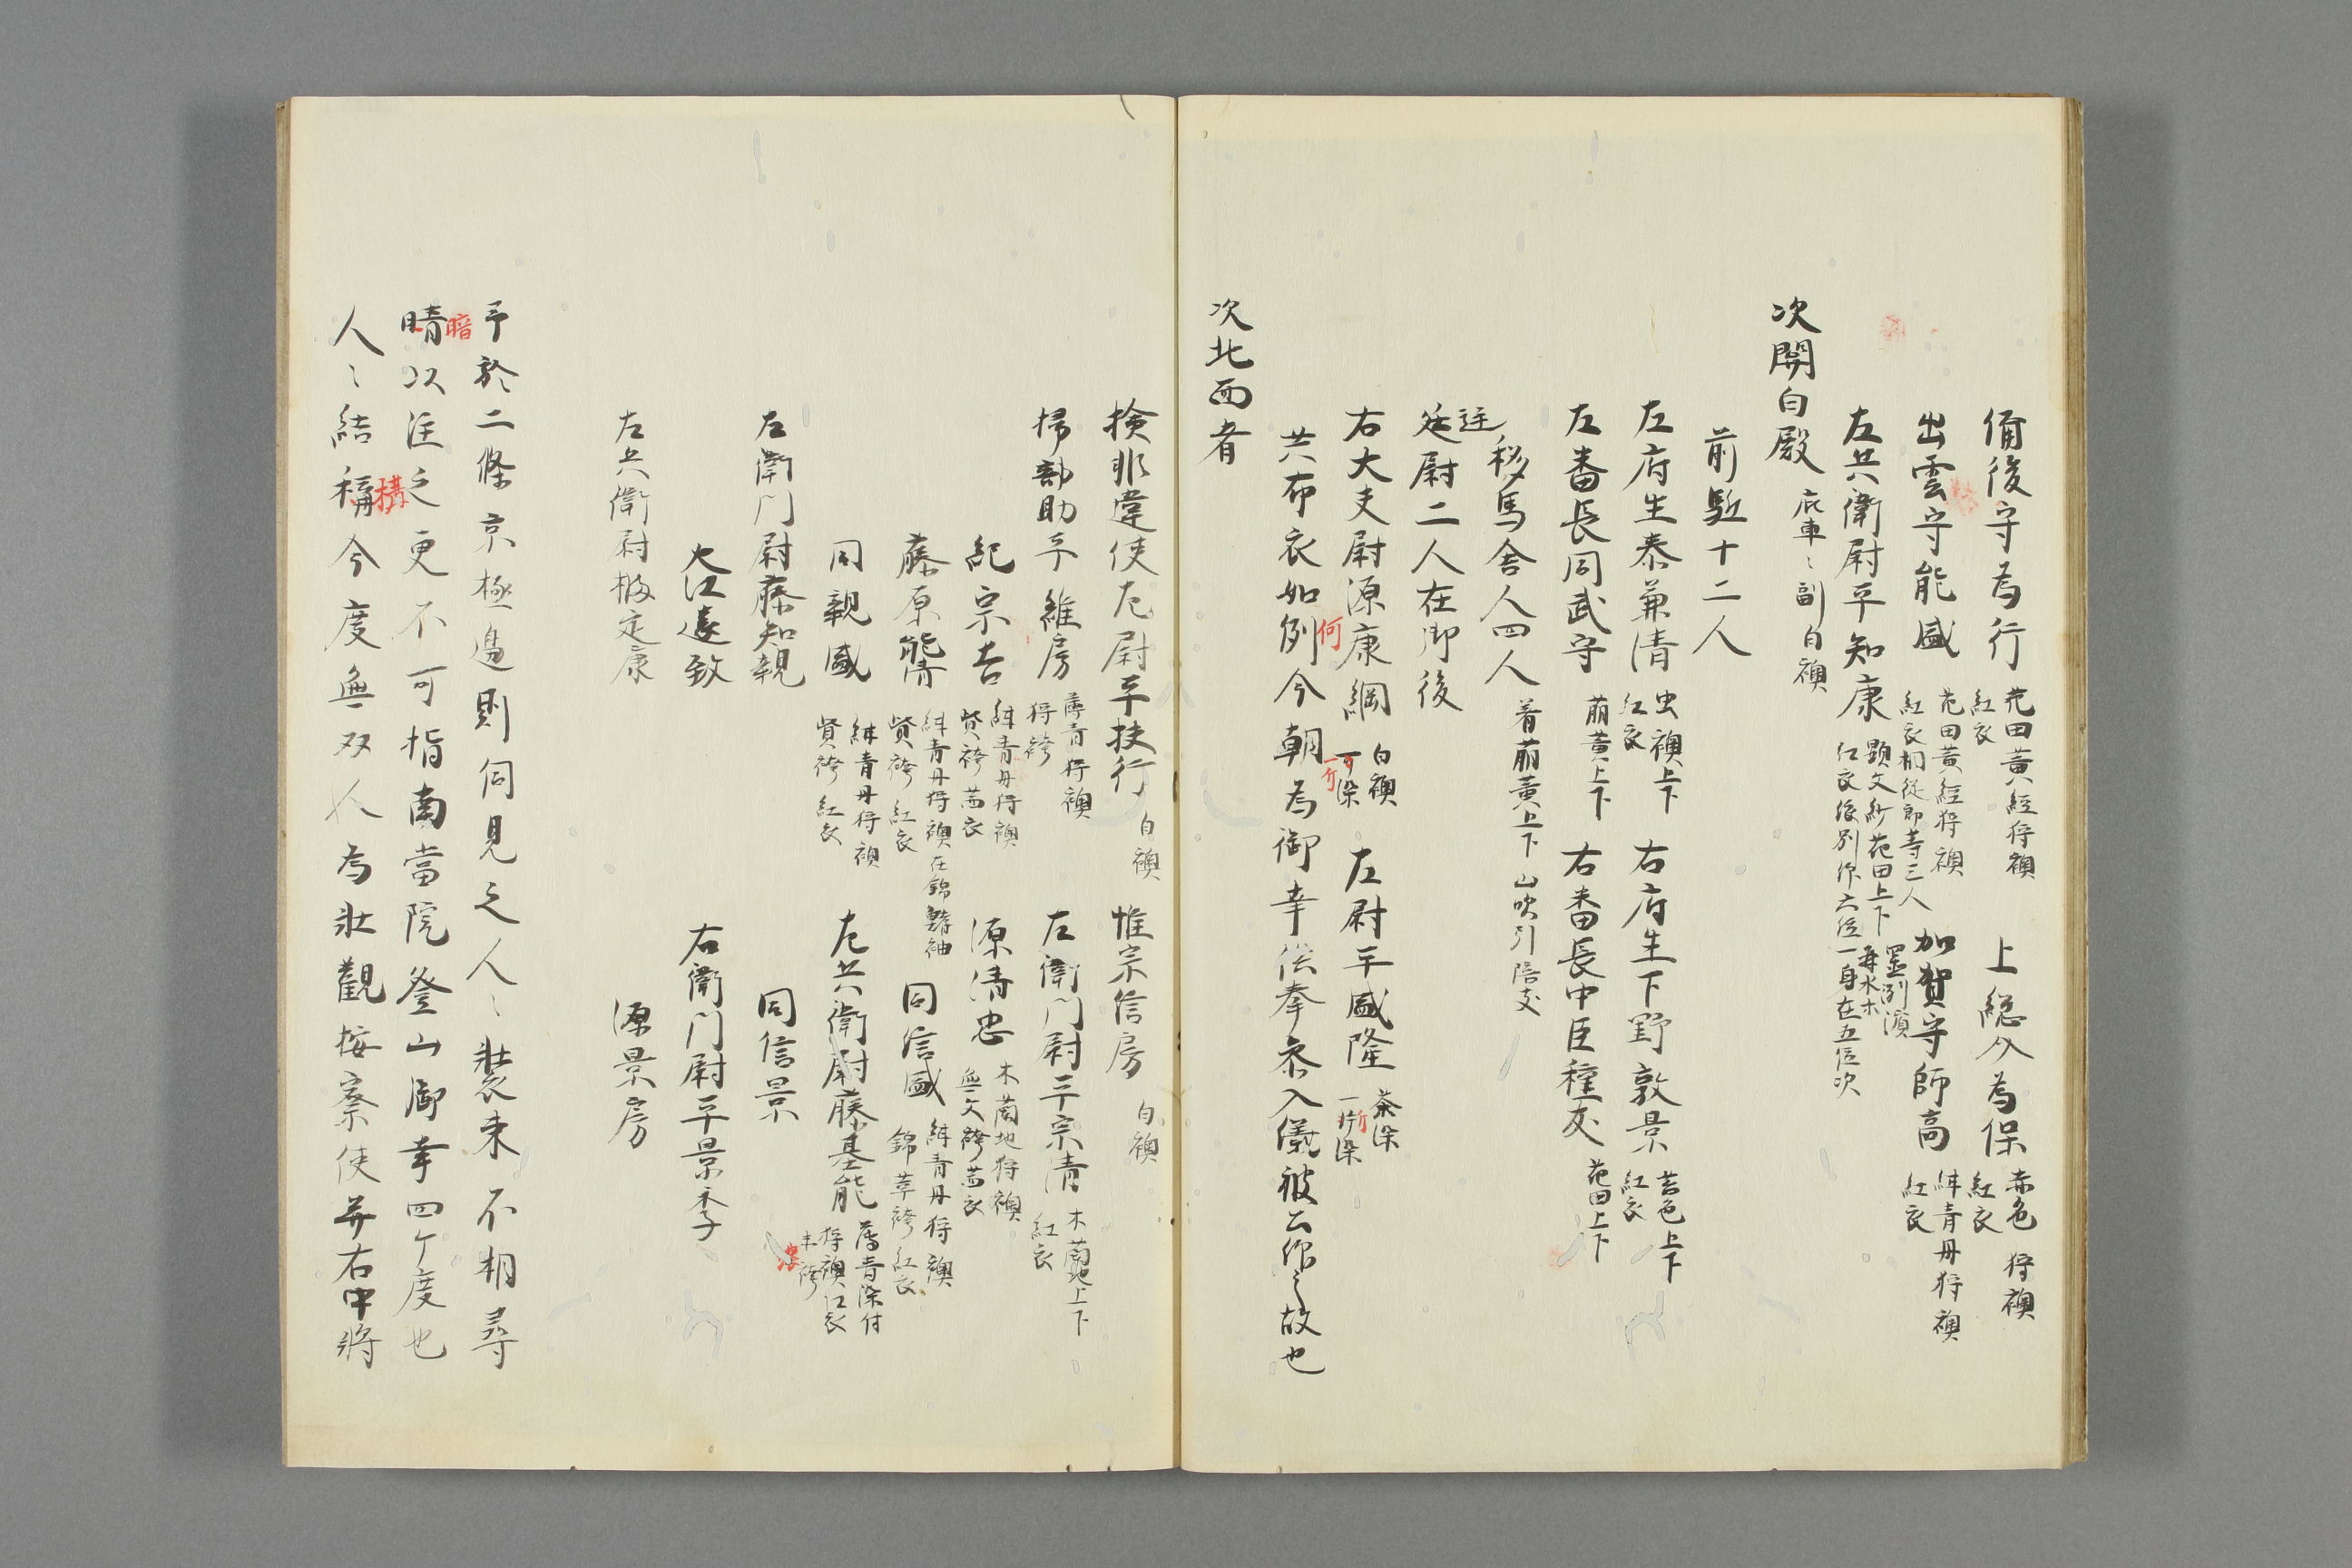 備後守為行 苑田黄経狩襖 紅衣 上総介為保 赤色狩襖 紅衣
出雲守能盛 苑田黄経狩襖 紅衣相従郎等三人 加賀守師高 青丹狩襖 紅衣
左兵衛尉平知康 顕文紗苑田上下 紅衣 六位一身在五位次
次関白殿 庇車ミ副白襖
前駈十二人
左府生秦兼清 虫襖上下 紅衣 右府生下野敦景 苦色上下 紅衣
左番長同武守 萠黄上下 右番長中臣種友 苑田上下
移馬舎人四人 着萠黄上下 山吹引陪支
廷尉二人在御後
右大夫尉源康綱 白襖 左尉平盛隆 茶染 一斤染
共布衣如例何今朝為御幸供奉参入儀被公作之故也
次北面者
検非違使左尉平扶行 白襖 惟宗信房 白襖
掃部助平維房 薄青狩襖 狩袴 左衛門尉平宗清 木蘭地上下 紅衣
紀宗吉 青丹狩襖 賢袴 茜衣 源清忠 木蘭地狩襖 無文袴 茜衣
藤原能清 青丹狩襖在錦鰭袖 賢袴 紅衣 同信盛 青丹狩襖 錦葦袴 紅衣
同親盛 青丹狩襖 賢袴 紅衣 左兵衛尉藤基能 薄青染付狩襖 紅衣
左衛門尉藤知親 同信景
大江遠致 右衛門尉平景季
左兵衛尉橘定康 源景房
予於二條京極邉則伺見之人ミ装束不相尋
晴暗以注之更不可指南當院登山御幸四ケ度也
人ミ結稱構今度無双人為壮觀按察使并右中将